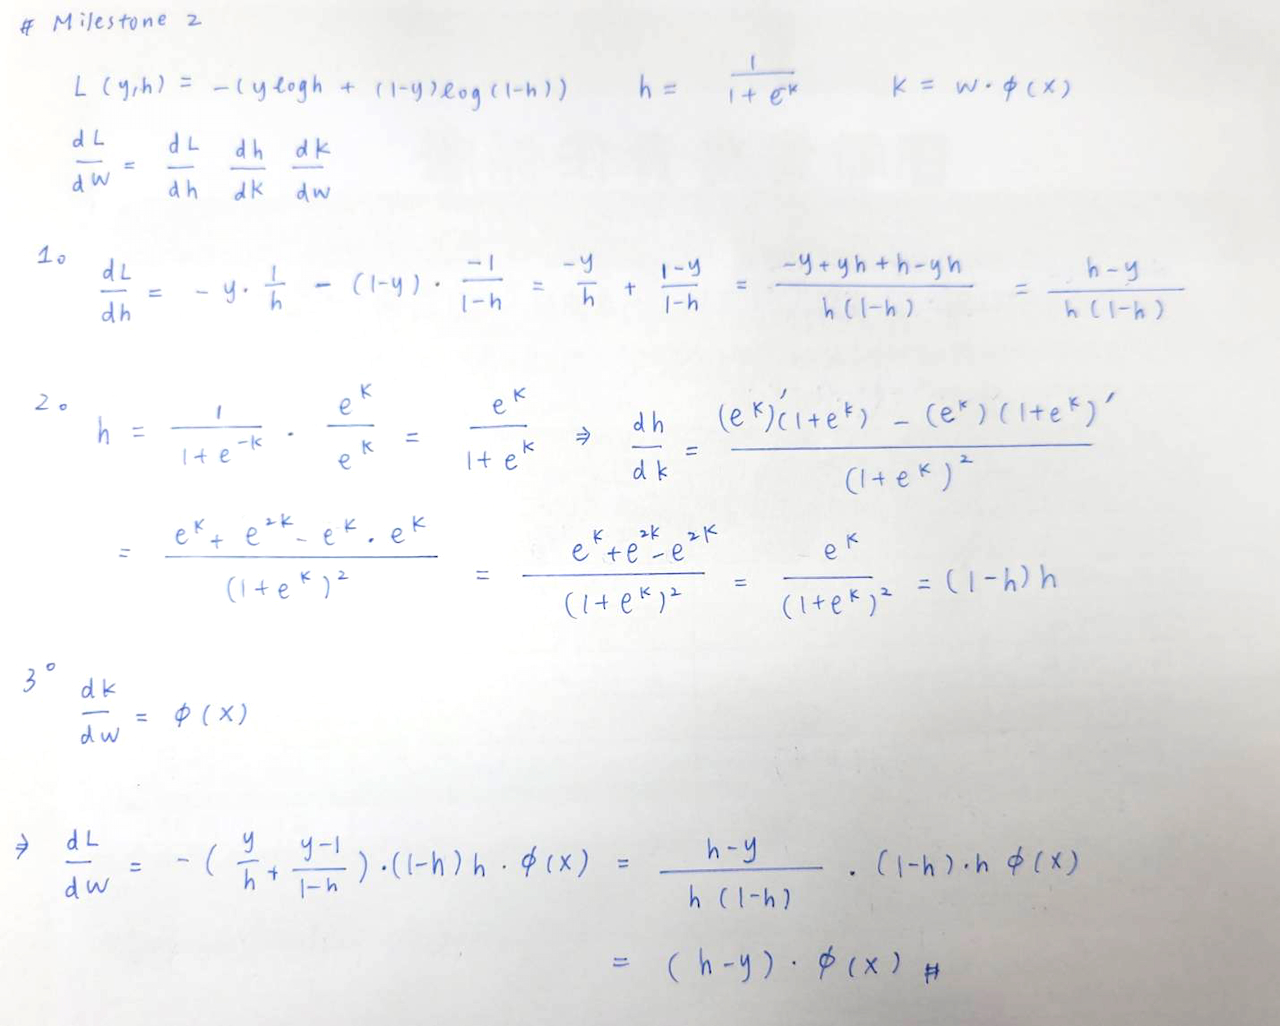 # Milestone 2
L(y,h) = -(ylogh + (1-y)log(1-h))    h = 1/(1+e^-k)    k = w·φ(x)
dL/dw = dL/dh dh/dk dk/dw
1° dL/dh = -y·1/h - (1-y)·-1/(1-h) = -y/h + (1-y)/(1-h) = (-y+yh+h-yh)/(h(1-h)) = (h-y)/(h(1-h))
2° h = 1/(1+e^-k) · e^k/e^k = e^k/(1+e^k) ⇒ dh/dk = ((e^k)'(1+e^k) - (e^k)(1+e^k)')/(1+e^k)^2
= (e^k + e^2k - e^k·e^k)/(1+e^k)^2 = (e^k+e^2k-e^2k)/(1+e^k)^2 = e^k/(1+e^k)^2 = (1-h)h
3° dk/dw = φ(x)
⇒ dL/dw = -(y/h + (y-1)/(1-h))·(1-h)h·φ(x) = (h-y)/(h(1-h)) · (1-h)·h φ(x)
= (h-y)·φ(x) #